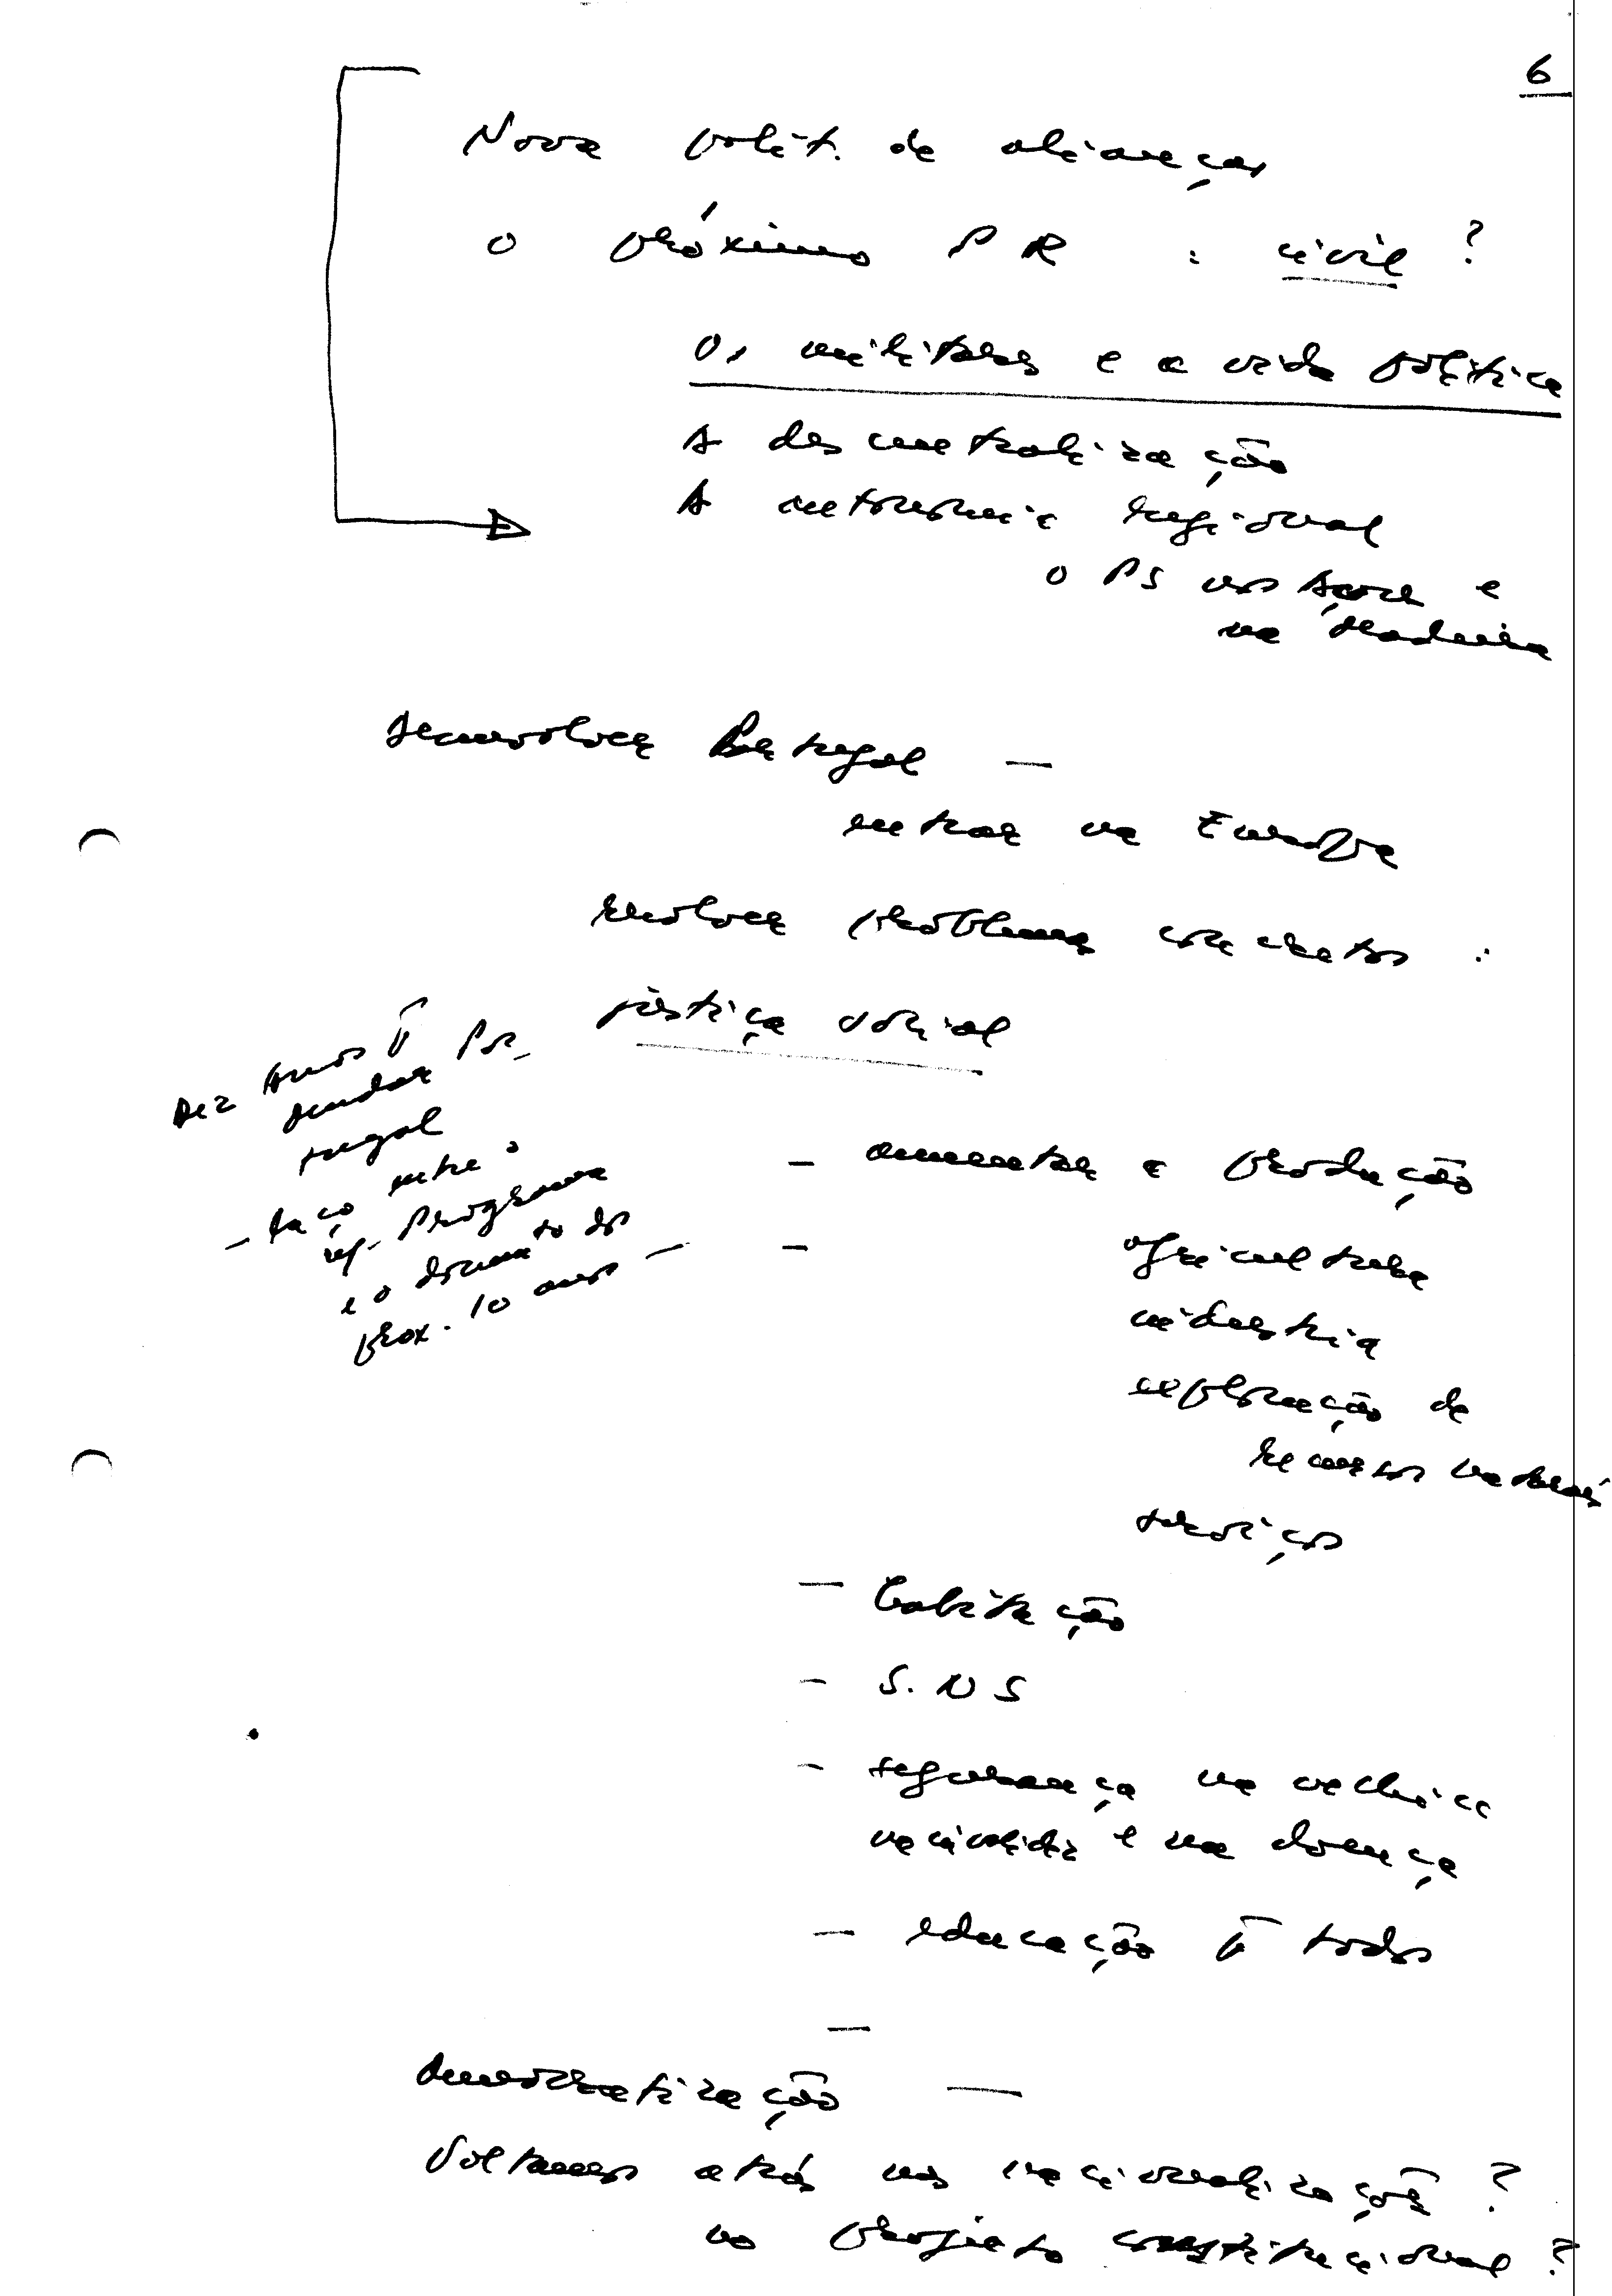 6
Nova polít. de alianças
o próximo PR : civil ?
Os militares e a vida política
A descentralização
A autonomia regional
o PS nos Açores e
na Madeira
Desenvolver Portugal —
entrar na Europa
resolver problemas concretos :
justiça social
Dez anos p̄ Por-
mudar
tugal
- laço entre o
Programa
e o documento dos
prox. 10 anos —
- aumentar a produção
- agricultura
indústria
exploração de
recursos naturais
serviços
- habitação
- S.NS
- segurança na velhice
na invalidez e na doença
- educação p̄ todos
—
Democratização —
Voltamos atrás nas nacionalizações ?
no projecto constitucional ?